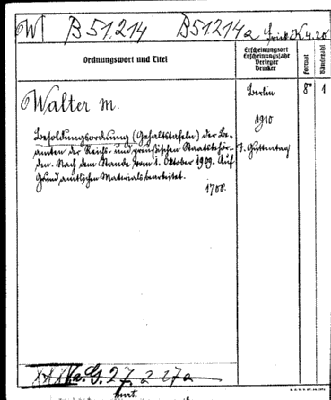 W B51.214 B51214a
Ordnungswort und Titel
Erscheinungsort
Erscheinungsjahr
Verleger
Drucker
Format
Bändezahl
Walter M.
Berlin 8 1
1910
Besoldungsordnung (Gehaltstafeln) der Be-
amten der Reichs- und preußischen Staatsbehör- J. Guttentag
den. Nach dem Stande vom 1. Oktober 1909. Auf
Grund amtlichen Materials bearbeitet.
1708.
G. 27. 2 27a